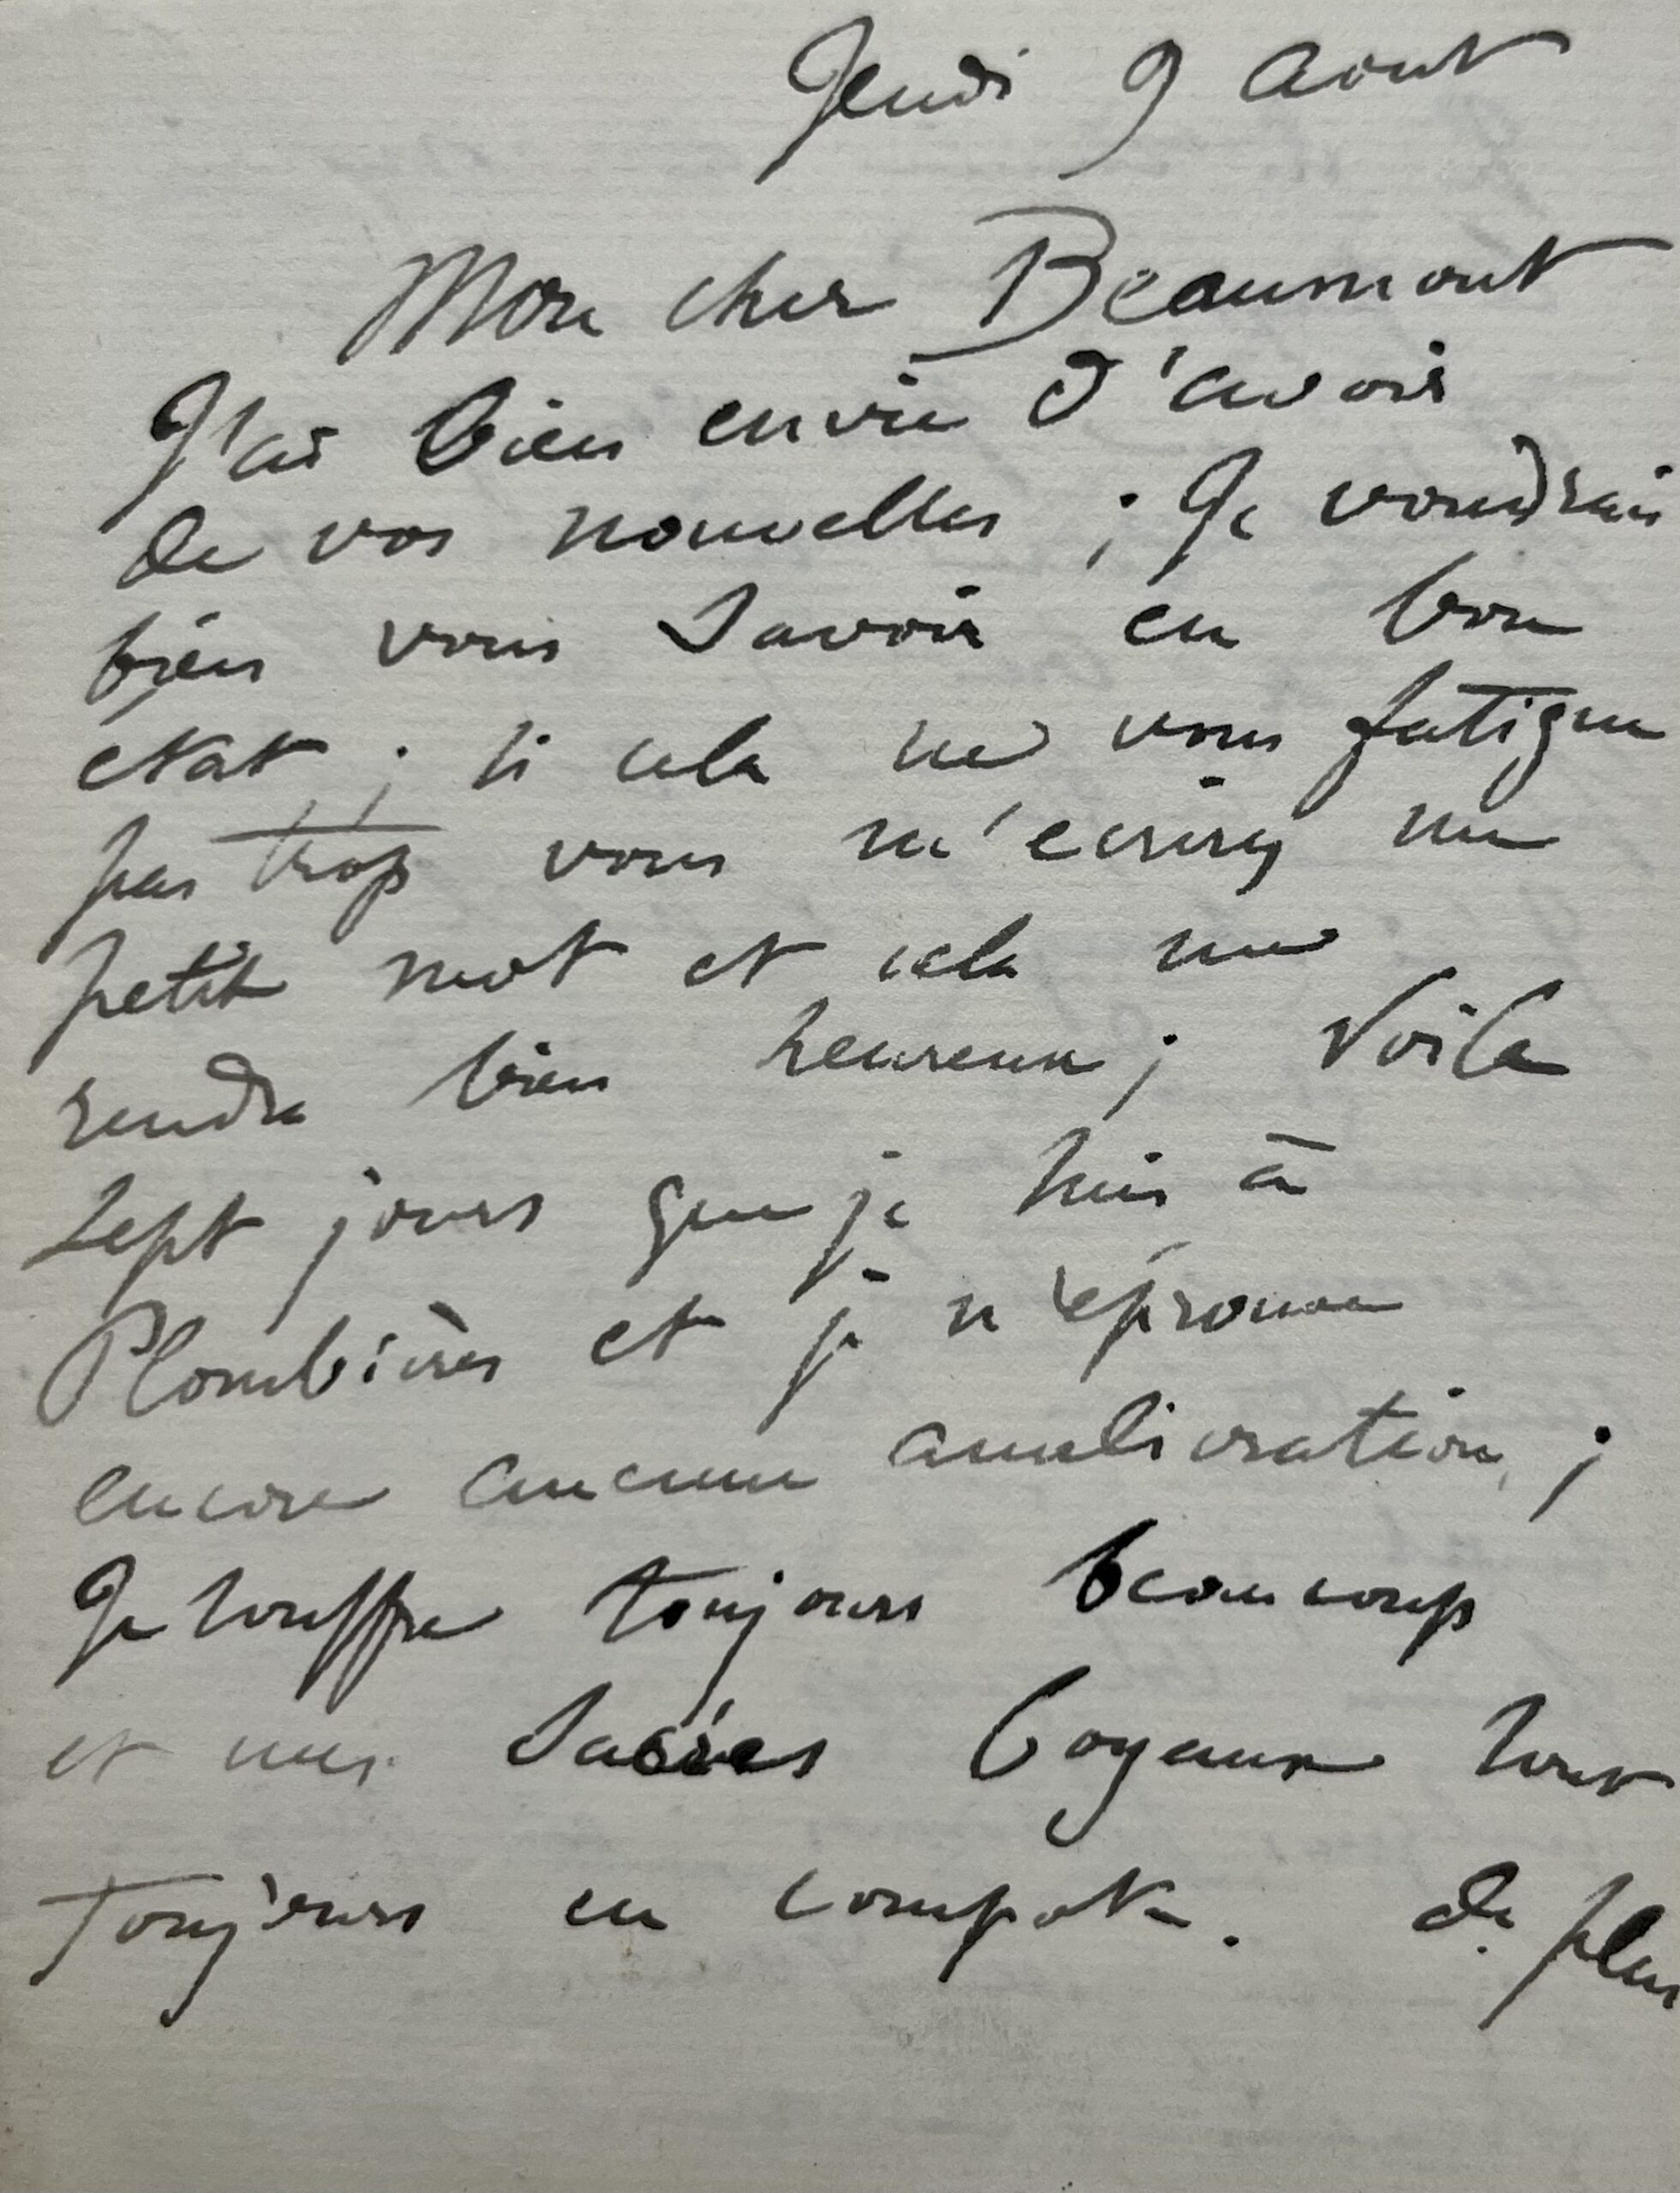 Jeudi 9 Aout
Mon cher Beaumont
J'ai bien envie d'avoir
de vos nouvelles ; Je voudrais
bien vous savoir en bon
etat ; si cela ne vous fatigue
pas trop vous m'ecrirez un
petit mot et cela me
rendra bien heureux ; Voila
sept jours que je suis à
Plombières et je n'éprouve
encore aucune amelioration ;
Je souffre toujours beaucoup
et mes sacrés boyaux sont
toujours en compote. De plus